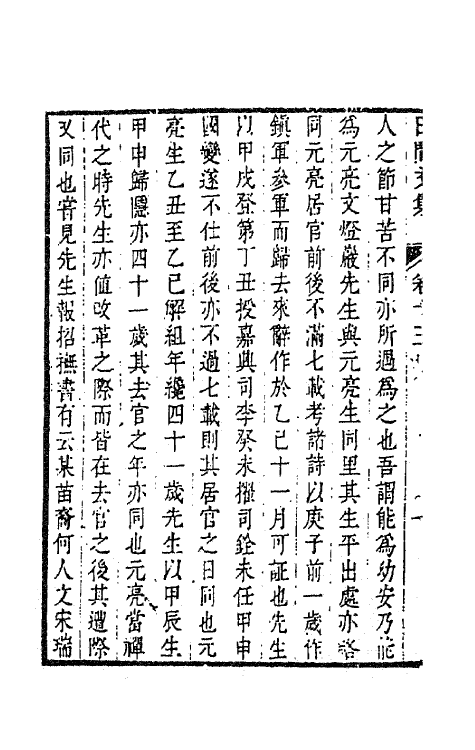 人之節甘苦不同亦所遇爲之也吾謂能爲幼安乃能
爲元亮文燈巖先生與元亮生同里其生平出處亦畧
同元亮居官前後不滿七載考諸詩以庚子前一歲作
鎮軍參軍而歸去來辭作於乙巳十一月可証也先生
以甲戌登第丁丑授嘉興司李癸未擢司銓未任甲申
國變遂不仕前後亦不過七載則其居官之日同也元
亮生乙丑至乙巳解組年纔四十一歲先生以甲辰生
甲申歸隱亦四十一歲其去官之年亦同也元亮當禪
代之時先生亦值改革之際而皆在去官之後其遭際
又同也嘗見先生報招撫書有云某苗裔何人文宋瑞